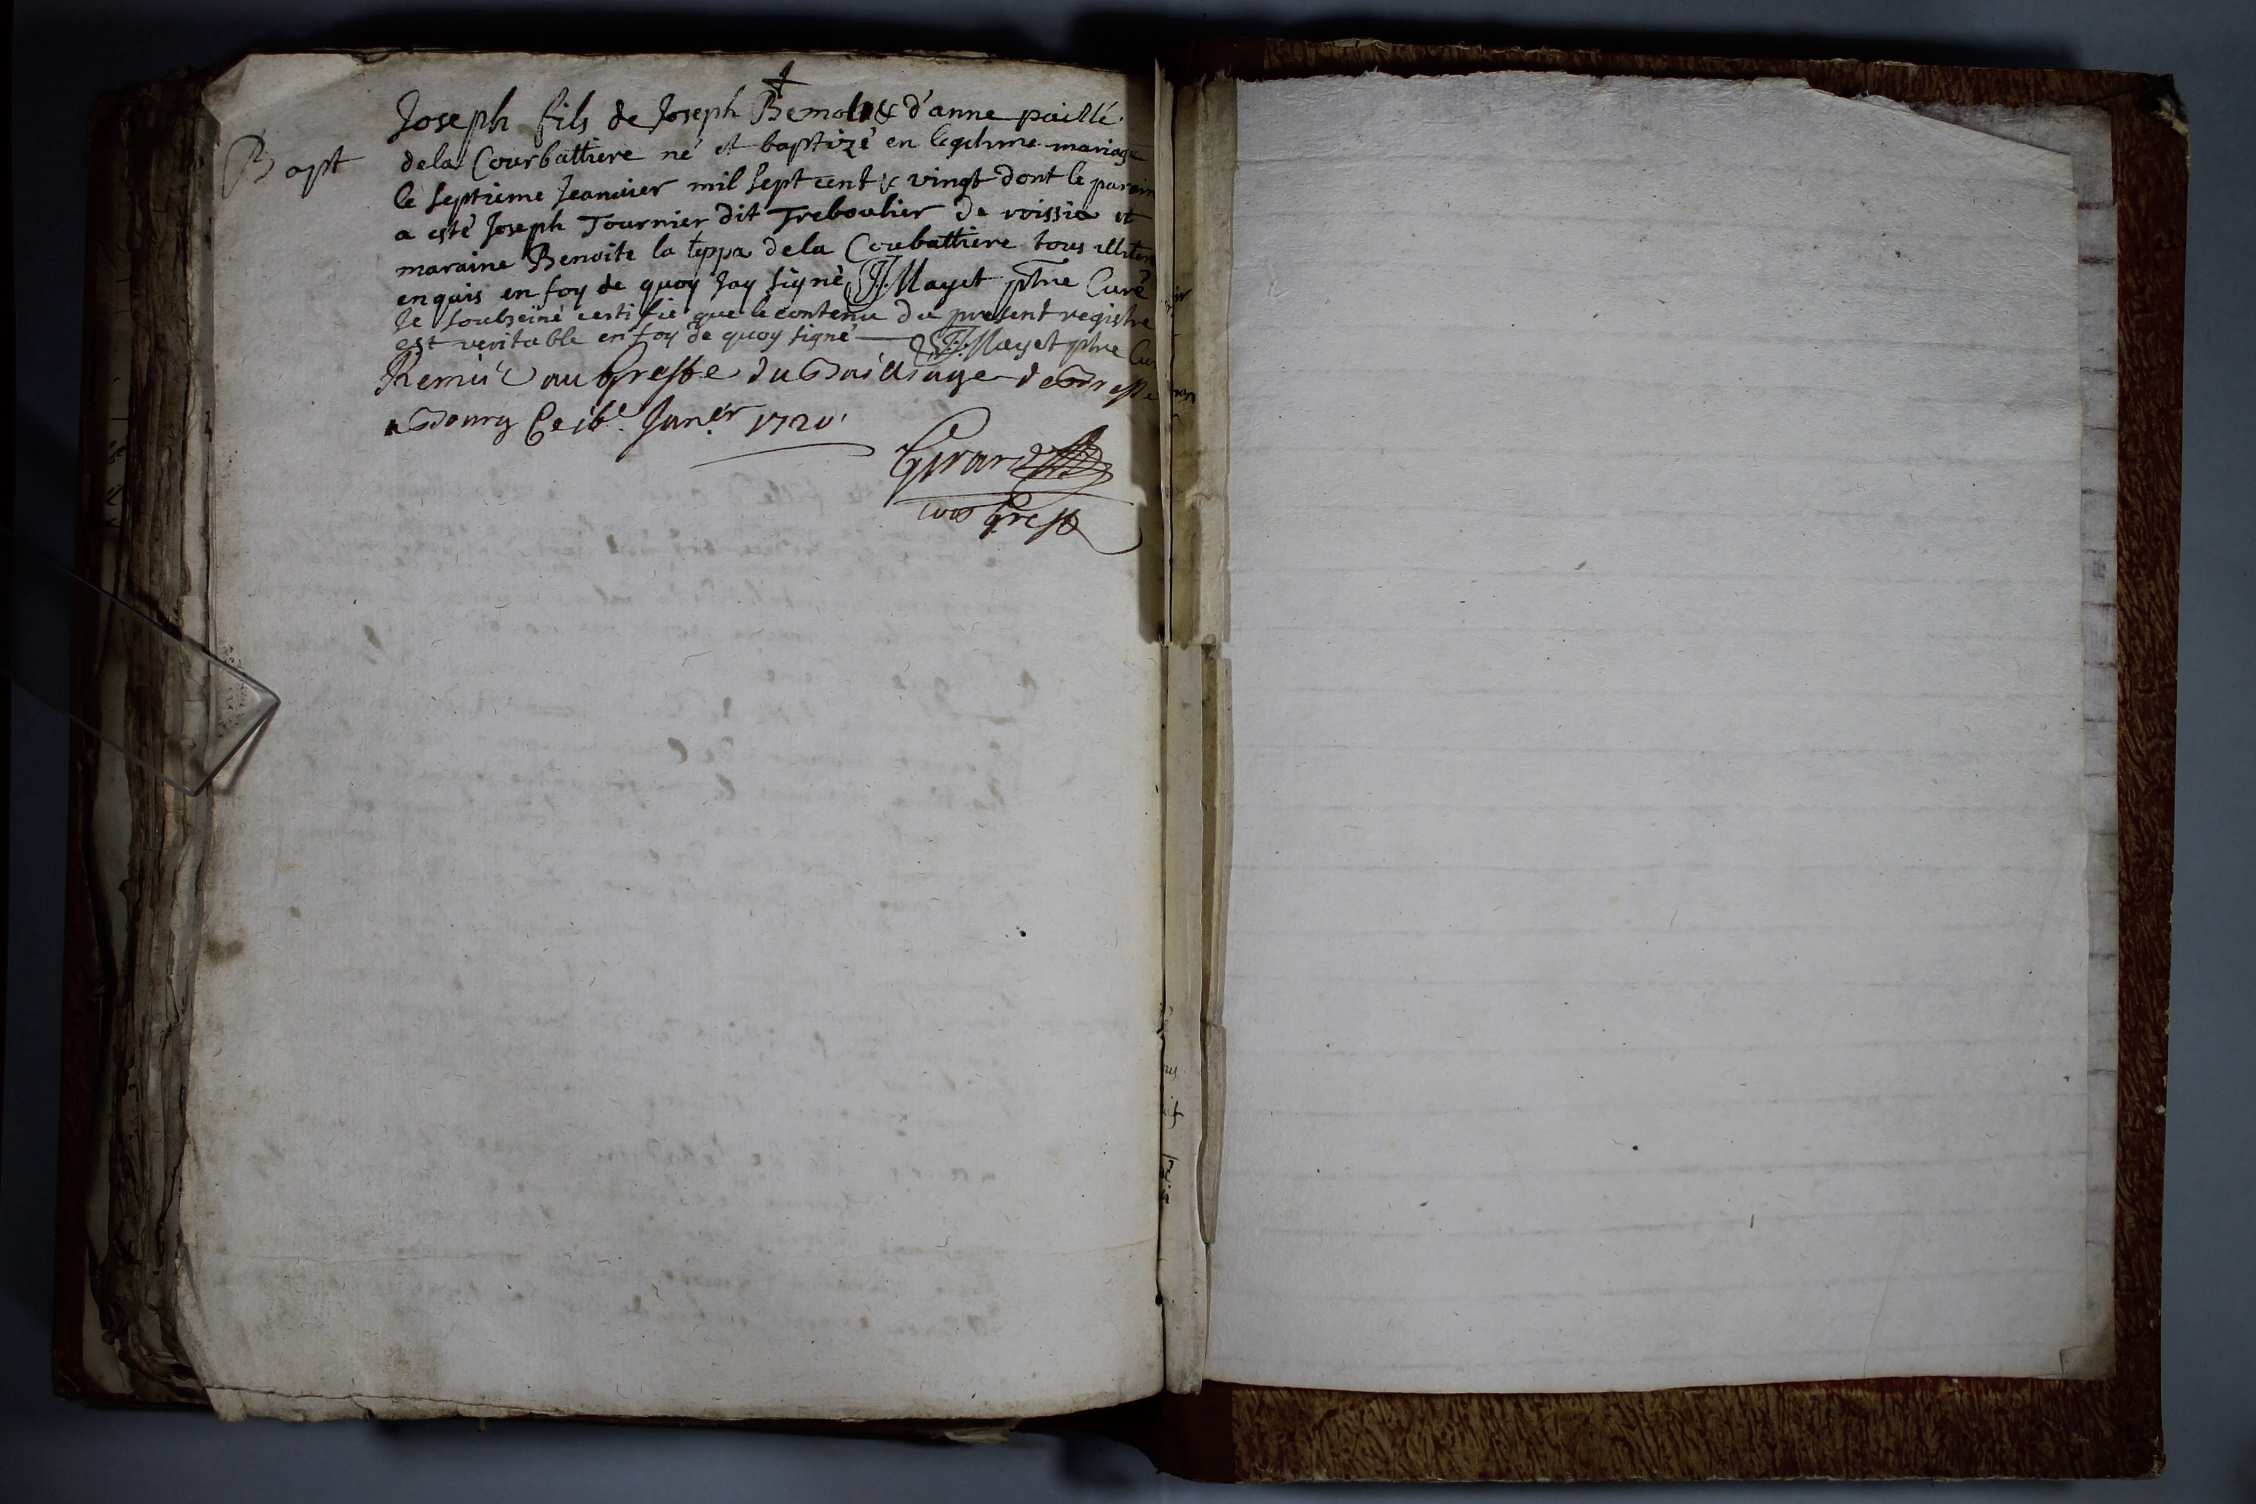 Bapt
Joseph fils de Joseph Bemol & d'anne paillé
dela Courbattiere né et baptizé en legitime mariage
le septieme Jeanuier mil sept cent & vingt dont le parain
a esté Joseph Tournier dit Treboulier de voissia et
maraine Benoite la teppa dela Coubattiere tous illiter
enquis en foy de quoy Jay signé Mayet ptre Curé
Je soubseiné certifie que le contenu du present registre
est veritable en foy de quoy signé Mayet ptre Cu
Remis au Greffe du Bailliage de Bresse
a Bourg Ce 16e Janer 1720
Girard
Greff